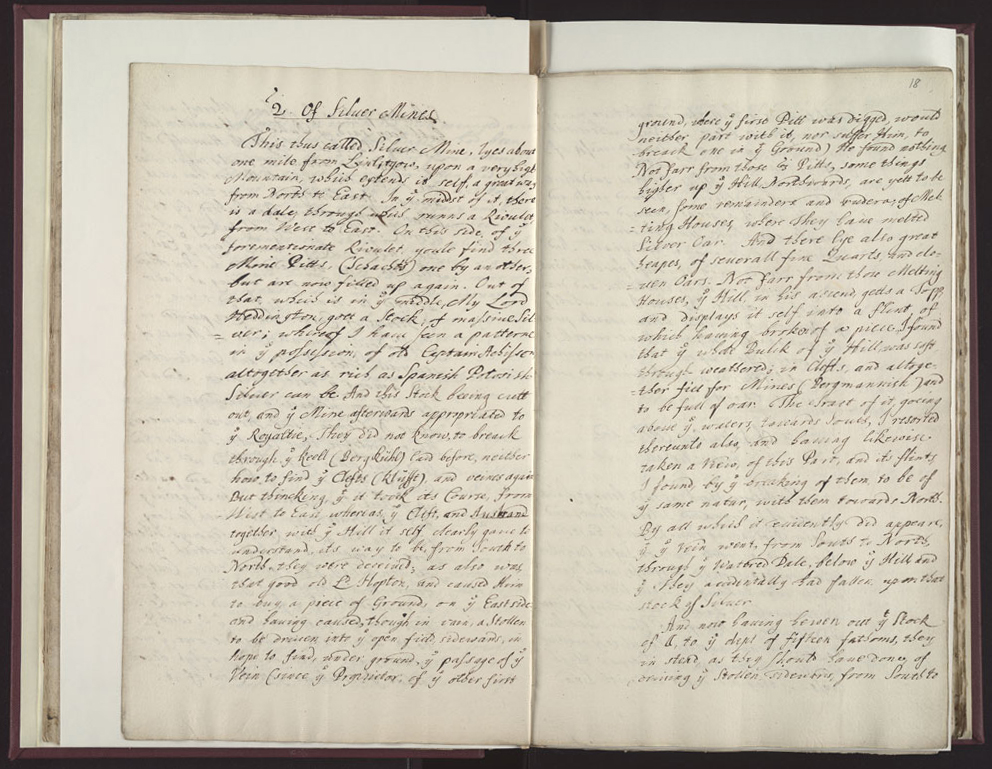 2. Of Silver Mines
This thus called Silver Mine, lyes about
one mile from Linlitgow, upon a very high
Mountain, which extends it self, a great way
from North to East. In ÿ midst of it, there
is a dale, through which runns a Rivulet
from West to East. On this side, of ÿ
forementionate Rivulet, youle find three
Mine Pitts, (Schachts) one by another,
but are now filled up again. Out of
that, which is in ÿ middle, My Lord
Heddington, gott a Stock, of massive Sil
=ver; whereof I have seen a patterne
in ÿ possession, of old Captain Achisson
altogether as rich as Spanish Potosish
Silver can be. And this Stock being cutt
out, and ÿ Mine afterwards appropriated to
ÿ Royaltie, They did not know, to breack
through ÿ Keell (Bergkühl) laid before, neither
how, to find ÿ Clefts (Klüffte), and veines again
But thincking, ÿ it took its Course, from
West to East, whereas ÿ Cleft, and Ausstand
together, with ÿ Hill it self, clearly gave to
understand, its way to be, from South to
North, they were deceived; as also was
that good old Lᵈ Hopton, and caused Him
to buy, a piece of Ground, on ÿ East side
and having caused, though in vain, a Stollen
to be driven into ÿ open field sidewards, in
hope to find, under ground, ÿ passage of ÿ
Vein (since ÿ Proprietor, of ÿ other first
18
ground, where ÿ first Pitt was digged, would
neither part with it, nor suffer Him, to
breack one in ÿ Ground) He found nothing
Not farr from those 3 Pitts, some things
higher up ÿ Hill Northwards, are yett to be
seen, some remainders and rudera, of Mel
=ting Houses, where They have melted
Silver Oar. And there lye also great
heapes, of severall fine Quarts, and clo-
=ven Oars. Not farr from those Melting
Houses, ÿ Hill, in his ascend, getts a Topp,
and displays it self into a flint, of
which having broken of a piece, I found
that ÿ whole Bulk of ÿ Hill, was soft
through weathered, in Clefts, and altoge-
ther fiet for Mines (Bergmannish) and
to be full of oar. The Tract of it, going
above ÿ waters, towards South, I resorted
thereunto also, and having likewise
taken a View, of this Part, and its flints
I found, by ÿ breaking of them, to be of
ÿ same natur, with them towards North.
By all which it evidently did appeare,
ÿ ÿ Vein went, from South to North,
through ÿ Watbred Dale, below ÿ Hill and
ÿ They accidentally had fallen upon that
stock of Silver
And now having hewen out ÿ Stock
of it, to ÿ deps of fifteen fathoms, they
in stead, as they should have done, of
driving ÿ Stollen, sidewars, from South to